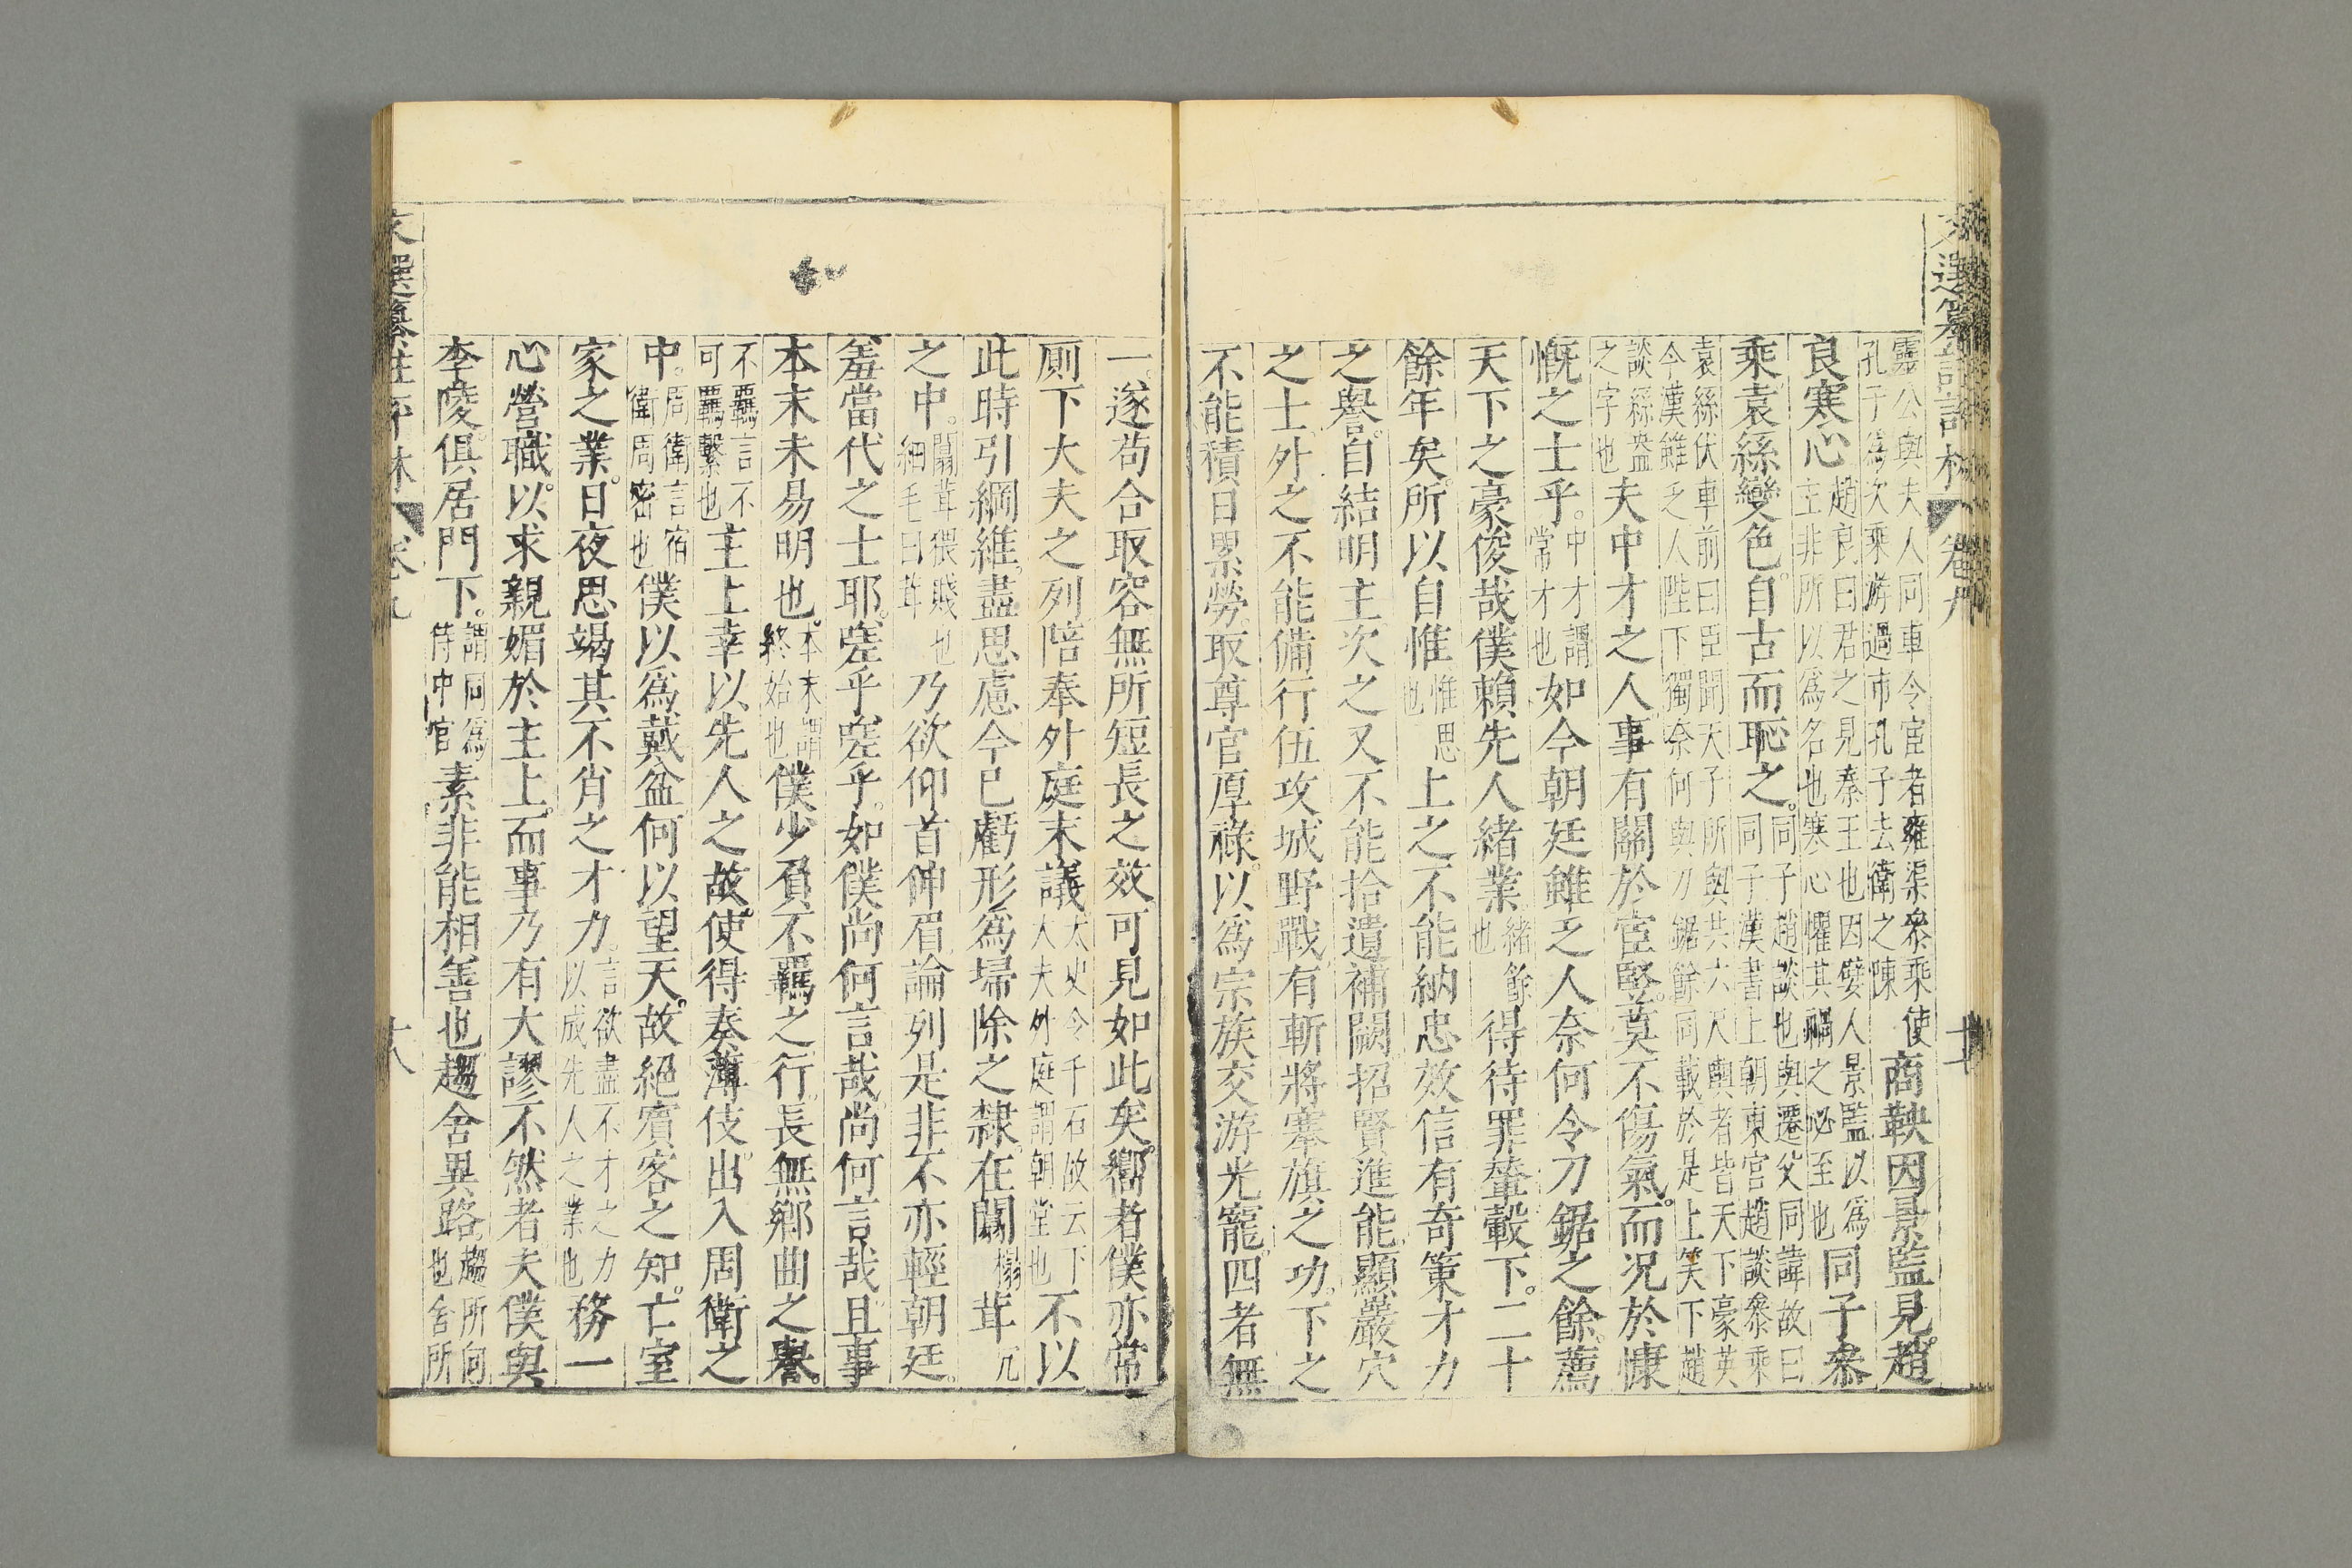 靈公與夫人同車令宦者雍渠參乘使
孔子爲次乘游過市孔子去衛之陳
商鞅因景監見趙
良寒心
趙良曰君之見秦王也因嬖人景監以爲
主非所以爲名也寒心懼其禍之必至也
同子參
乘袁絲變色自古而恥之
同子趙談也與遷父同諱故曰
同子漢書上朝東宮趙談參乘
袁絲伏車前曰臣聞天子所與共六尺輿者皆天下豪英
今漢雖乏人陛下獨奈何與刀鋸餘同載於是上笑下趙
談絲盎
之字也
夫中才之人事有關於宦豎莫不傷氣而况於慷
慨之士乎
中才謂
常才也
如今朝廷雖乏人奈何令刀鋸之餘薦
天下之豪俊哉僕賴先人緒業
緒餘
也
得待罪輦轂下二十
餘年矣所以自惟
惟思
也
上之不能納忠效信有奇策才力
之譽自結明主次之又不能拾遺補闕招賢進能顯巖穴
之士外之不能備行伍攻城野戰有斬將搴旗之功下之
不能積日累勞取尊官厚祿以爲宗族交游光寵四者無
一遂茍合取容無所短長之效可見如此矣嚮者僕亦常
厠下大夫之列陪奉外庭末議
太史令千石故云下
大夫外庭謂朝堂也
不以
此時引綱維盡思慮今已虧形爲埽除之隸在闒
榻
茸
冗
之中
闒茸猥賤也
細毛曰茸
乃欲仰首伸眉論列是非不亦輕朝廷
羞當代之士耶嗟乎嗟乎如僕尚何言哉尚何言哉且事
本末未易明也
本末謂
終始也
僕少負不羈之行長無鄉曲之譽
不羈言不
可羈繫也
主上幸以先人之故使得奏薄伎出入周衛之
中
周衛言宿
衛周密也
僕以爲戴盆何以望天故絕賓客之知亡室
家之業日夜思竭其不肖之才力
言欲盡不才之力
以成先人之業也
務一
心營職以求親媚於主上而事乃有大謬不然者夫僕與
李陵俱居門下
謂同爲
侍中官
素非能相善也趨舍異路
趨所向
也舍所